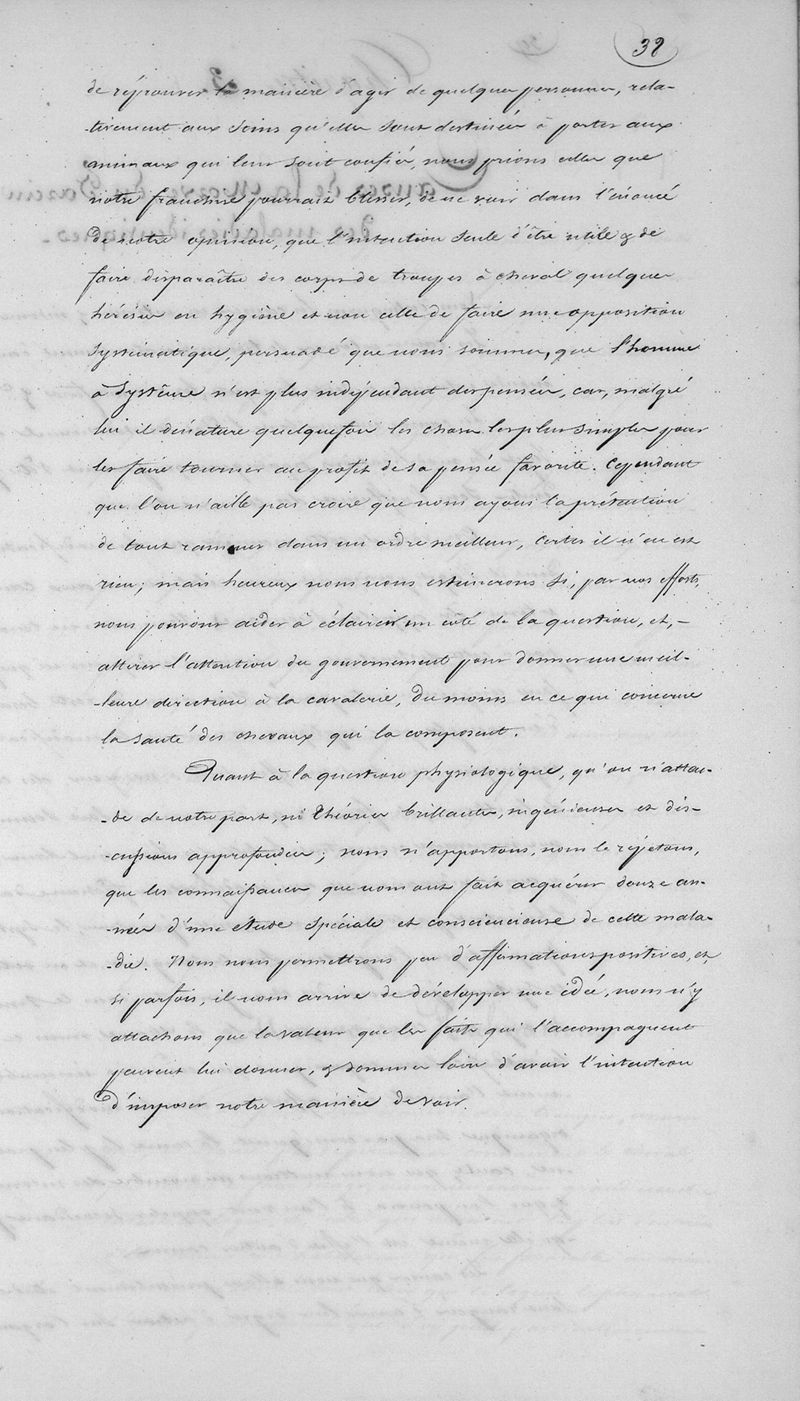 32
de réprouver la manière d'agir de quelques personnes, rela-
-tivement aux soins qu'elles sont destinées à porter aux
animaux qui leur sont confiés, nous prions celles que
notre franchise pourrait blesser, de ne voir dans l'énoncé
de notre opinion, que l'intention seule d'être utile & de
faire disparaître des corps de troupes à cheval quelques
hérésies en hygiène et non celle de faire une opposition
systématique, persuadé que nous sommes, que l'homme
à système n'est plus indépendant des pensées, car, malgré
lui il dénature quelquefois les choses les plus simples pour
les faire tourner au profit de sa pensée favorite. Cependant
que l'on n'aille pas croire que nous ayons la prétention
de tout ramener dans un ordre meilleur, certes il n'en est
rien; mais heureux nous nous estimerons si, par nos efforts,
nous pouvons aider à éclaircir un côté de la question, et, -
attirer l'attention du gouvernement pour donner une meil-
-leure direction à la cavalerie, du moins en ce qui concerne
la santé des chevaux qui la composent.
Quant à la question physiologique, qu'on n'atten-
-de de notre part, ni théories brillantes, ingénieuses et dis-
-cussions approfondies; nous n'apportons, nous le répétons,
que les connaissances que nous ont fait acquérir douze an-
-nées d'une étude spéciale et consciencieuse de cette mala-
-die. Nous nous permettrons peu d'affirmations positives, et,
si parfois, il nous arrive de développer une idée, nous n'y
attachons que la valeur que les faits qui l'accompagnent
peuvent lui donner, & sommes loin d'avoir l'intention
d'imposer notre manière de voir.